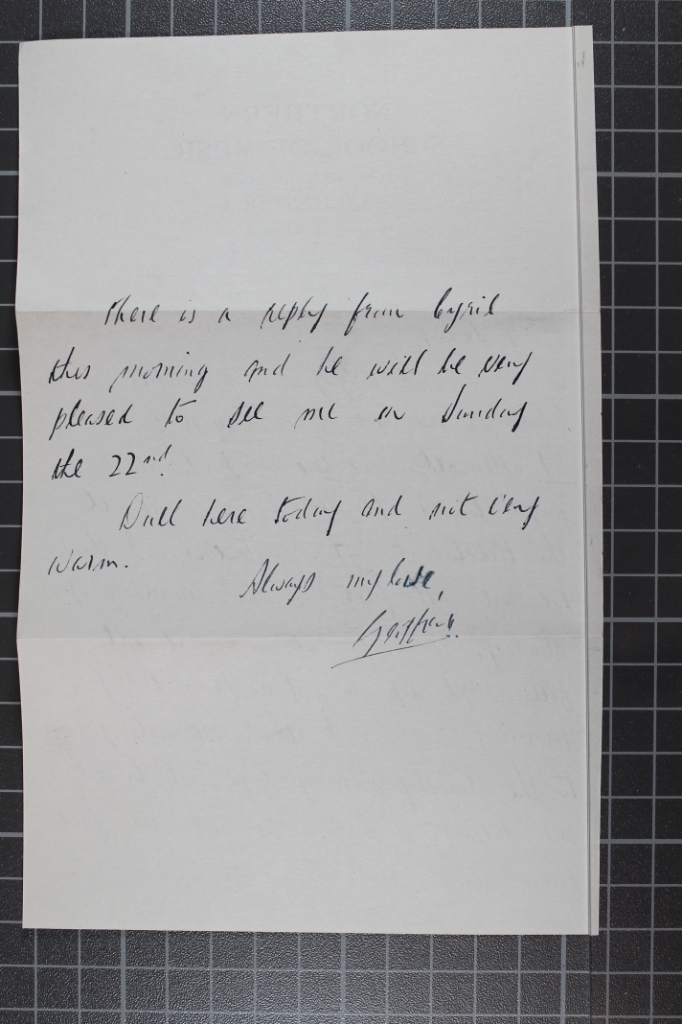 There is a reply from Cyril
this morning and he will be very
pleased to see me on Sunday
the 22nd.
Dull here today and not very
warm.
Always my love,
Geoffrey.